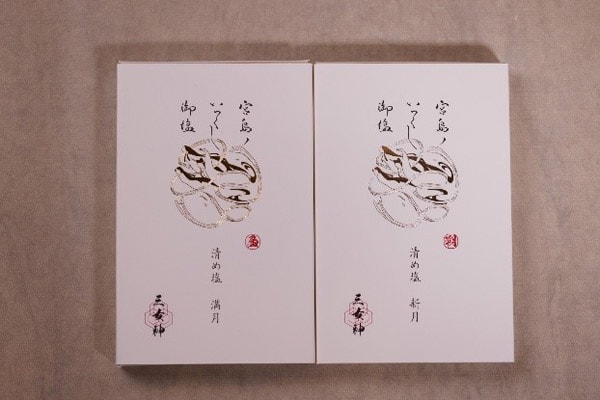 宮島ノ
いつくし
御塩
清め塩 満月
三女神
宮島ノ
いつくし
御塩
清め塩 新月
三女神